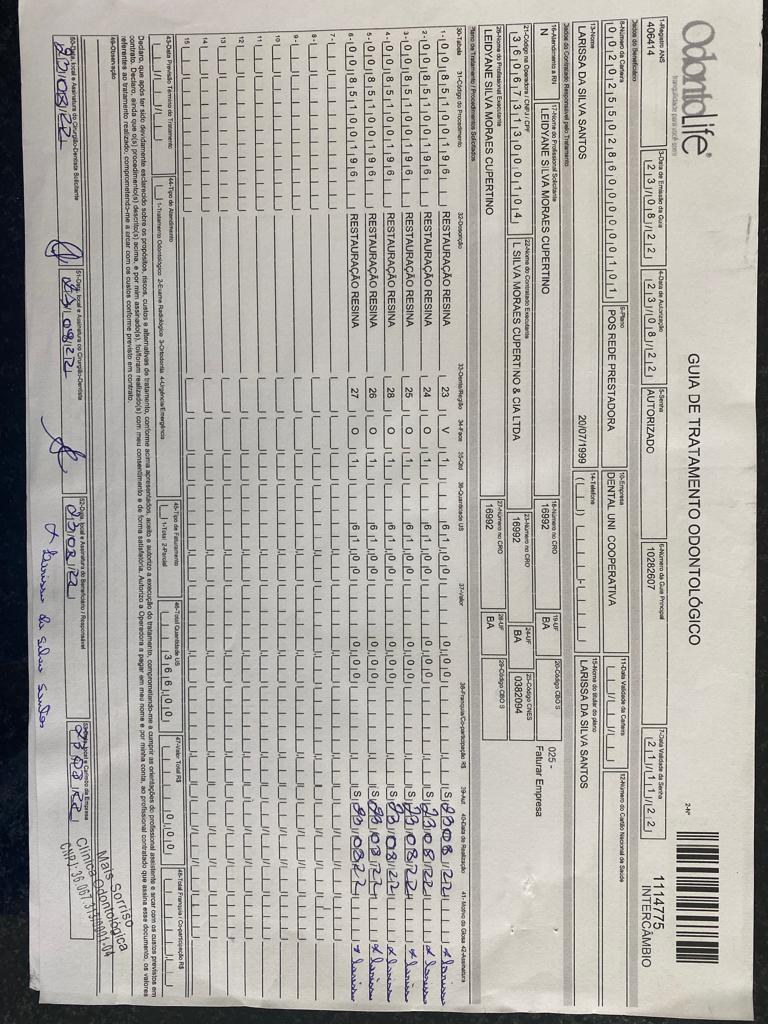 OdontoLife®
tranquilidade para você com
GUIA DE TRATAMENTO ODONTOLÓGICO
2-Nº
1114775
INTERCÂMBIO
1-Registro ANS
406414
3-Data de Emissão da Guia
23/08/22
4-Data de Autorização
23/08/22
5-Senha
AUTORIZADO
6-Número da Guia Principal
10282607
7-Data Validade da Senha
21/11/22
Dados do Beneficiário
8-Número da Carteira
00202550286000000101
9-Plano
POS REDE PRESTADORA
10-Empresa
DENTAL UNI COOPERATIVA
11-Data Validade da Carteira
12-Número do Cartão Nacional de Saúde
13-Nome
LARISSA DA SILVA SANTOS
20/07/1999
14-Telefone
15-Nome do titular do plano
LARISSA DA SILVA SANTOS
Dados do Contratado Responsável pelo Tratamento
16-Atendimento a RN
N
17-Nome do Profissional Solicitante
LEIDYANE SILVA MORAES CUPERTINO
18-Número no CRO
16992
19-UF
BA
20-Código CBO S
025 -
Faturar Empresa
21-Código na Operadora / CNPJ / CPF
36067313000104
22-Nome do Contratado Executante
L SILVA MORAES CUPERTINO & CIA LTDA
23-Número no CRO
16992
24-UF
BA
25-Código CNES
0382094
26-Nome do Profissional Executante
LEIDYANE SILVA MORAES CUPERTINO
27-Número no CRO
16992
28-UF
BA
29-Código CBO S
Plano de Tratamento / Procedimentos Solicitados
30-Tabela 31-Código do Procedimento 32-Descrição 33-Dente/Região 34-Face 35-Qtd 36-Quantidade US 37-Valor 38-Franquia/Co-participação R$ 39-Aut 40-Data de Realização 41- Motivo da Glosa 42-Assinatura
1- 00 85100196 RESTAURAÇÃO RESINA 23 V 1 61,00 0,00 S 23 08 22 x Larissa
2- 00 85100196 RESTAURAÇÃO RESINA 24 O 1 61,00 0,00 S 23 08 22 x Larissa
3- 00 85100196 RESTAURAÇÃO RESINA 25 O 1 61,00 0,00 S 23 08 22 x Larissa
4- 00 85100196 RESTAURAÇÃO RESINA 28 O 1 61,00 0,00 S 23 08 22 x Larissa
5- 00 85100196 RESTAURAÇÃO RESINA 26 O 1 61,00 0,00 S 23 08 22 x Larissa
6- 00 85100196 RESTAURAÇÃO RESINA 27 O 1 61,00 0,00 S 23 08 22 x Larissa
7-
8-
9-
10
11
12
13
14
15
43-Data Previsão Término do Tratamento
44-Tipo de Atendimento
1-Tratamento Odontológico 2-Exame Radiológico 3-Ortodontia 4-Urgência/Emergência
45-Tipo de Faturamento
1-Total 2-Parcial
46-Total Quantidade US
366,00
47-Valor Total R$
0,00
48-Total Franquia / Co-participação R$
Declaro, que após ter sido devidamente esclarecido sobre os propósitos, riscos, custos e alternativas de tratamento, conforme acima apresentados, aceito e autorizo a execução do tratamento, comprometendo-me a cumprir as orientações do profissional assistente e arcar com os custos previstos em
contrato. Declaro, ainda que o(s) procedimento(s) descrito(s) acima, e por mim assinado(s), foi/foram realizado(s) com meu consentimento e de forma satisfatória. Autorizo a Operadora a pagar em meu nome e por minha conta, ao profissional contratado que assina esse documento, os valores
referentes ao tratamento realizado, comprometendo-me a arcar com os custos conforme previsto em contrato.
49-Observação
50-Data, local e Assinatura do Cirurgião-Dentista Solicitante
23/08/22
51-Data, local e Assinatura do Cirurgião-Dentista
23/08/22
52-Data, local e Assinatura do Beneficiário / Responsável
23/08/22
x Larissa da Silva Santos
53-Data, local e Carimbo da Empresa
23/08/22
Mais Sorriso
Clínica Odontológica
CNPJ: 36.067.313/0001-04